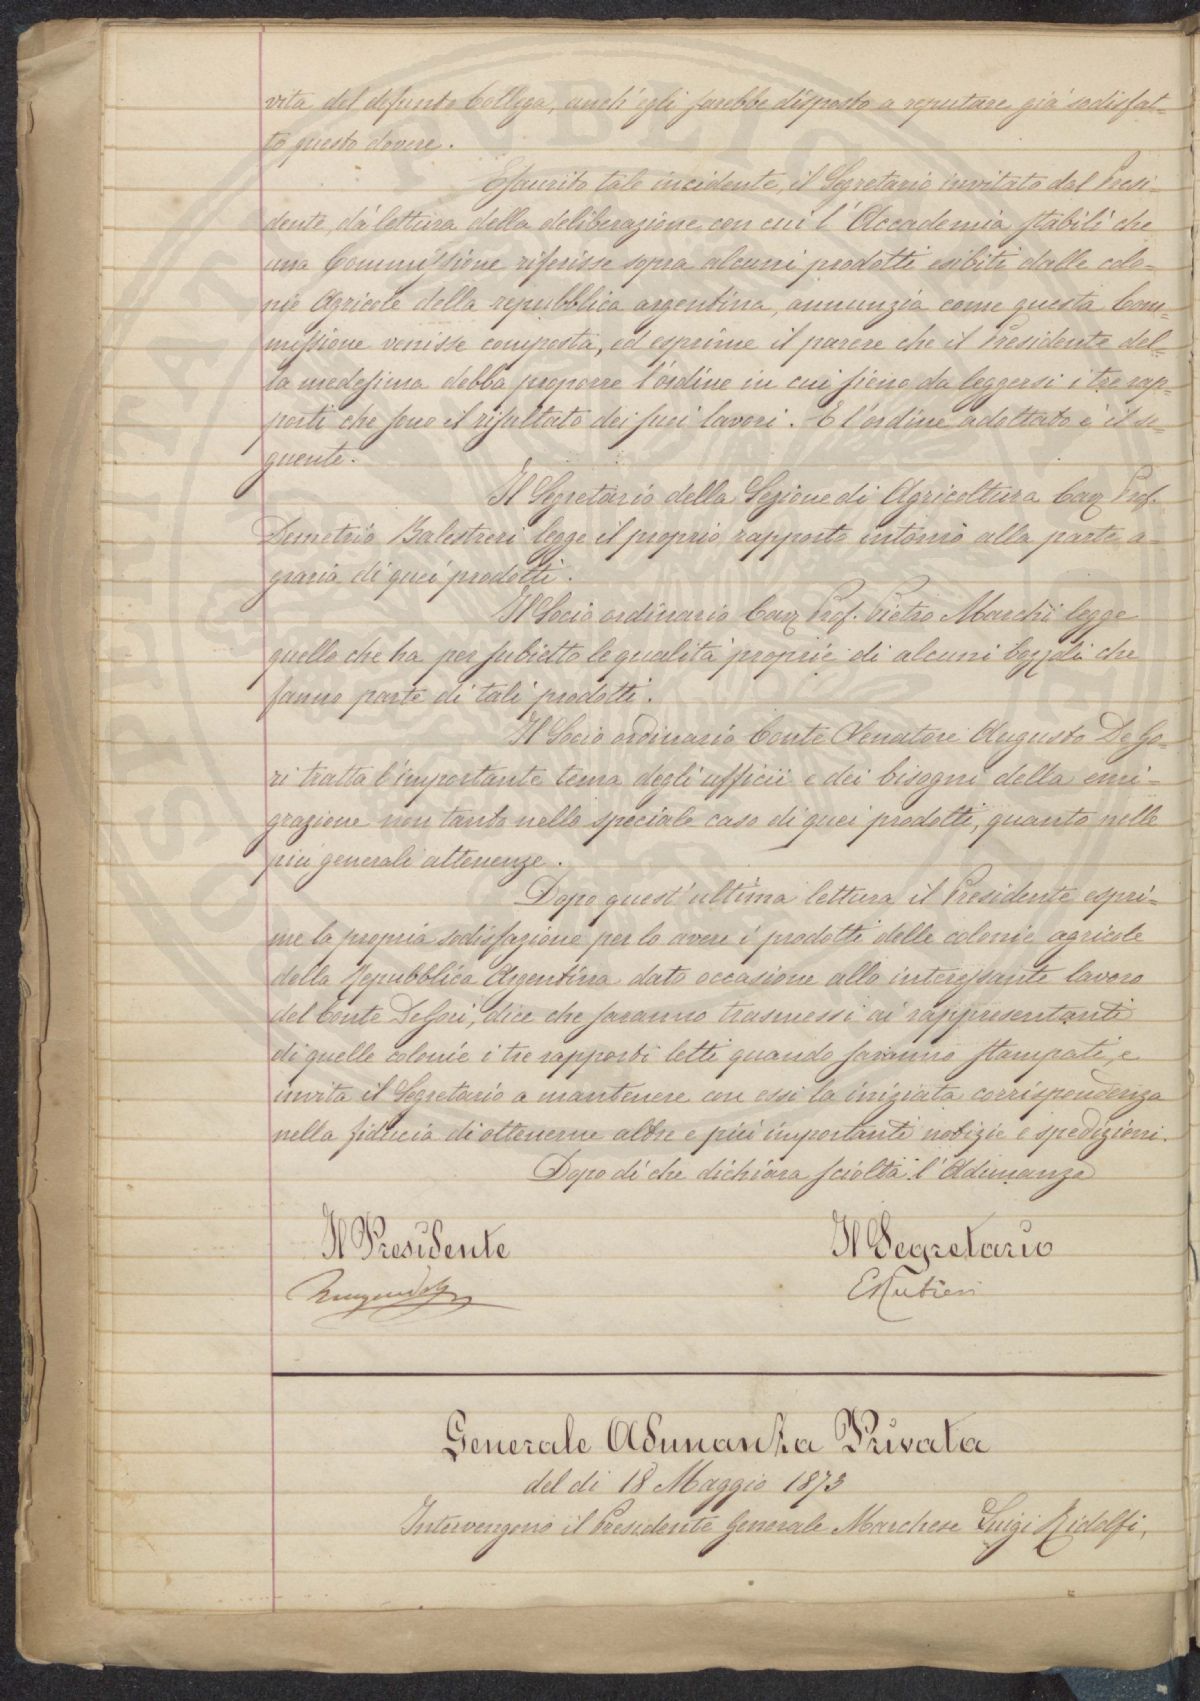 vita del defunto Collega, anch'egli sarebbe disposto a reputare già sodisfat-
to questo dovere.
Esaurito tale incidente, il Segretario invitato dal Presi-
dente, dà lettura della deliberazione con cui l'Accademia stabilì che
una Commissione riferisse sopra alcuni prodotti esibiti dalle colo-
nie Agricole della repubblica argentina, annunzia come questa Com-
missione venisse composta, ed esprime il parere che il Presidente del-
la medesima debba proporre l'ordine in cui sieno da leggersi i tre rap-
porti che sono il risultato dei suoi lavori. E l'ordine adottato è il se-
guente.
Il Segretario della Sezione di Agricoltura Cav. Prof.
Demetrio Balestreri legge il proprio rapporto intorno alla parte a-
graria di quei prodotti.
Il Socio ordinario Cav. Prof. Pietro Marchi legge
quello che ha per subietto le qualità proprie di alcuni bozzoli che
fanno parte di tali prodotti.
Il Socio ordinario Conte Senatore Augusto De Go-
ri tratta l'importante tema degli ufficii e dei bisogni della emi-
grazione non tanto nello speciale caso di quei prodotti, quanto nelle
più generali attenenze.
Dopo quest'ultima lettura il Presidente espri-
me la propria sodisfazione per lo avere i prodotti delle colonie agricole
della Repubblica Argentina dato occasione allo interessante lavoro
del Conte De Gori, dice che saranno trasmessi ai rappresentanti
di quelle colonie i tre rapporti letti quando saranno stampati, e
invita il Segretario a mantenere con essi la iniziata corrispondenza
nella fiducia di ottenerne altre e più importanti notizie e spedizioni.
Dopo di che dichiara sciolta l'Adunanza
Il Presidente
Il Segretario
E Rubieri
Generale Adunanza Privata
del di 18 Maggio 1873
Intervengono il Presidente Generale Marchese Luigi Ridolfi,